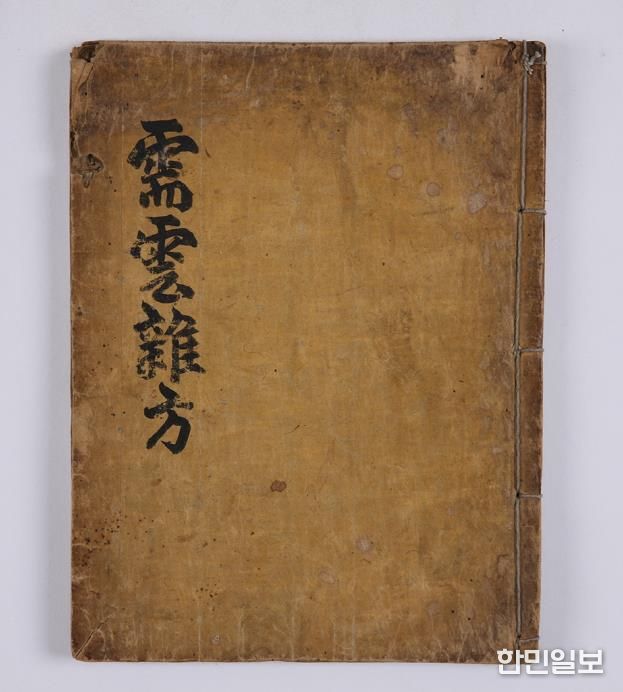 需雲雜方
함민일보